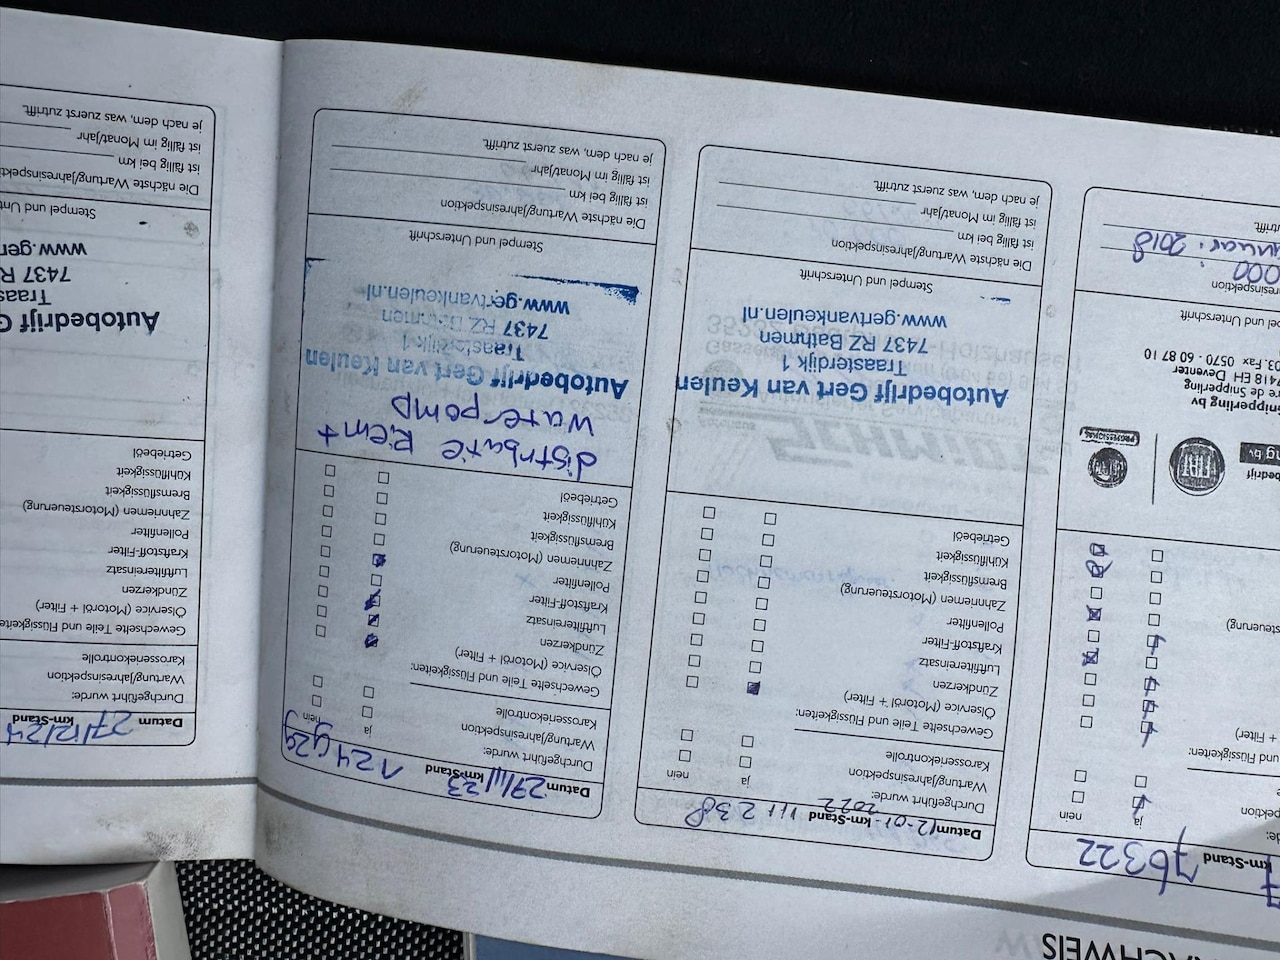 ACHWEIS
7 km-Stand 76322
ja nein
Stand
+ Filter)
FIAT
PROFESSIONAL
7418 EH Deventer
03. Fax 0570 - 60 87 10
nd Unterschrift
000
januar. 2018
zutrifft.
Datum 12-01-2022 km-Stand 111 238
Durchgeführt wurde: ja nein
Wartung/Jahresinspektion
Karosseriekontrolle
Gewechselte Teile und Flüssigkeiten:
Ölservice (Motoröl + Filter)
Zündkerzen
Luftfiltereinsatz
Kraftstoff-Filter
Pollenfilter
Zahnriemen (Motorsteuerung)
Bremsflüssigkeit
Kühlflüssigkeit
Getriebeöl
Autobedrijf Gert van Keulen
Traasterdijk 1
7437 RZ Bathmen
www.gertvankeulen.nl
Stempel und Unterschrift
Die nächste Wartung/Jahresinspektion
ist fällig bei km
ist fällig im Monat/Jahr
je nach dem, was zuerst zutrifft.
Datum 27/11/23 km-Stand 124929
Durchgeführt wurde: ja nein
Wartung/Jahresinspektion
Karosseriekontrolle
Gewechselte Teile und Flüssigkeiten:
Ölservice (Motoröl + Filter)
Zündkerzen
Luftfiltereinsatz
Kraftstoff-Filter
Pollenfilter
Zahnriemen (Motorsteuerung)
Bremsflüssigkeit
Kühlflüssigkeit
Getriebeöl
distributie Riem +
waterpomp
Autobedrijf Gert van Keulen
Traasterdijk 1
7437 RZ Bathmen
www.gertvankeulen.nl
Stempel und Unterschrift
Die nächste Wartung/Jahresinspektion
ist fällig bei km
ist fällig im Monat/Jahr
je nach dem, was zuerst zutrifft.
Datum 27/12/24 km-Stand
Durchgeführt wurde:
Wartung/Jahresinspektion
Karosseriekontrolle
Gewechselte Teile und Flüssigkeite
Ölservice (Motoröl + Filter)
Zündkerzen
Luftfiltereinsatz
Kraftstoff-Filter
Pollenfilter
Zahnriemen (Motorsteuerung)
Bremsflüssigkeit
Kühlflüssigkeit
Getriebeöl
Autobedrijf G
Traas
7437 R
www.ger
Stempel und Unt
Die nächste Wartung/Jahresinspektion
ist fällig bei km
ist fällig im Monat/Jahr
je nach dem, was zuerst zutrifft.